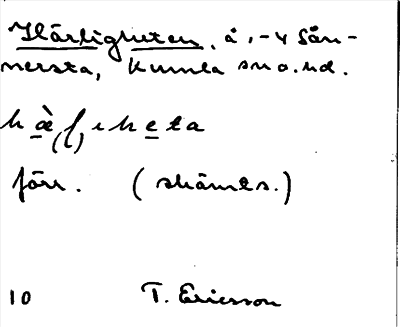 Härligheten, å, -4 Sån-
nersta, Kumla sn o. hd.
hà̱(l)iḵe̱ta
förr. (skämts.)
10 T. Ericsson